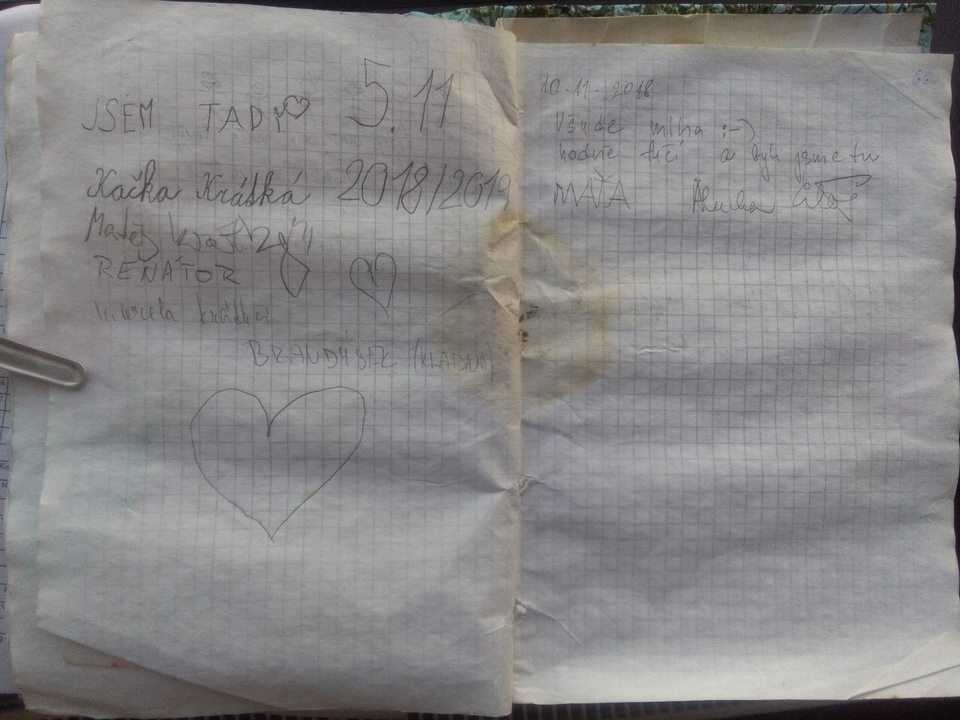 JSEM TADY 5.11
Kačka Krátká 2018/2019
Matěj
RENÁTOR
krátká
BRANDÝSEK (KLADNO)
66
10.11.2018
Všude mlha :-)
hodně fučí a byli jsme tu
MÁŤA